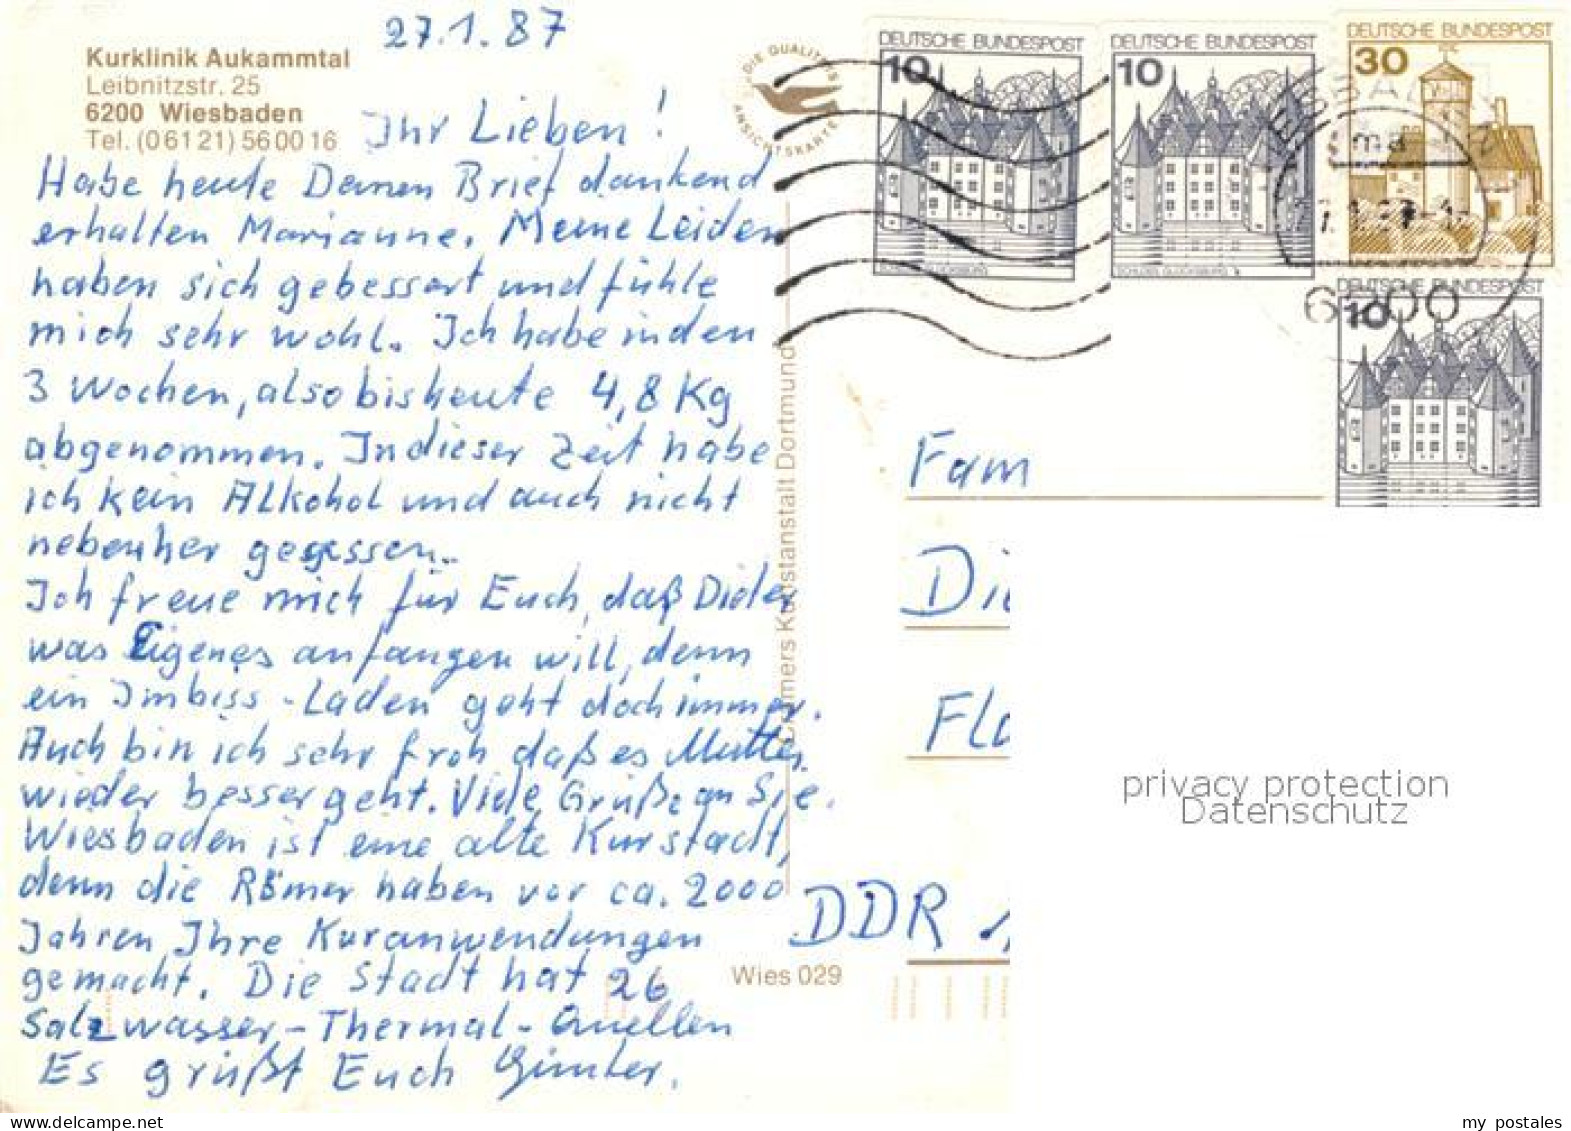 27.1.87
Kurklinik Aukammtal
Leibnitzstr. 25
6200 Wiesbaden
Tel. (06121) 560016
Ihr Lieben!
Habe heute Deinen Brief dankend
erhalten Marianne. Meine Leiden
haben sich gebessert und fühle
mich sehr wohl. Ich habe in den
3 Wochen, also bis heute 4,8 Kg
abgenommen. In dieser Zeit habe
ich kein Alkohol und auch nicht
nebenher gegessen.
Ich freue mich für Euch, daß Dieter
was Eigenes anfangen will, denn
ein Imbiss-Laden geht doch immer.
Auch bin ich sehr froh daß es Mutter
wieder besser geht. Viele Grüße an Sie.
Wiesbaden ist eine alte Kurstadt,
denn die Römer haben vor ca. 2000
Jahren Ihre Kuranwendungen
gemacht. Die Stadt hat 26
Salzwasser-Thermal-Quellen
Es grüßt Euch Günter.
DIE QUALITÄTS
ANSICHTSKARTE
Cramers Kunstanstalt Dortmund
Wies 029
DEUTSCHE BUNDESPOST
10
SCHLOSS GLÜCKSBURG
DEUTSCHE BUNDESPOST
10
SCHLOSS GLÜCKSBURG
DEUTSCHE BUNDESPOST
30
DEUTSCHE BUNDESPOST
10
Fam
Di
Fl
DDR 1
privacy protection
Datenschutz
my postales